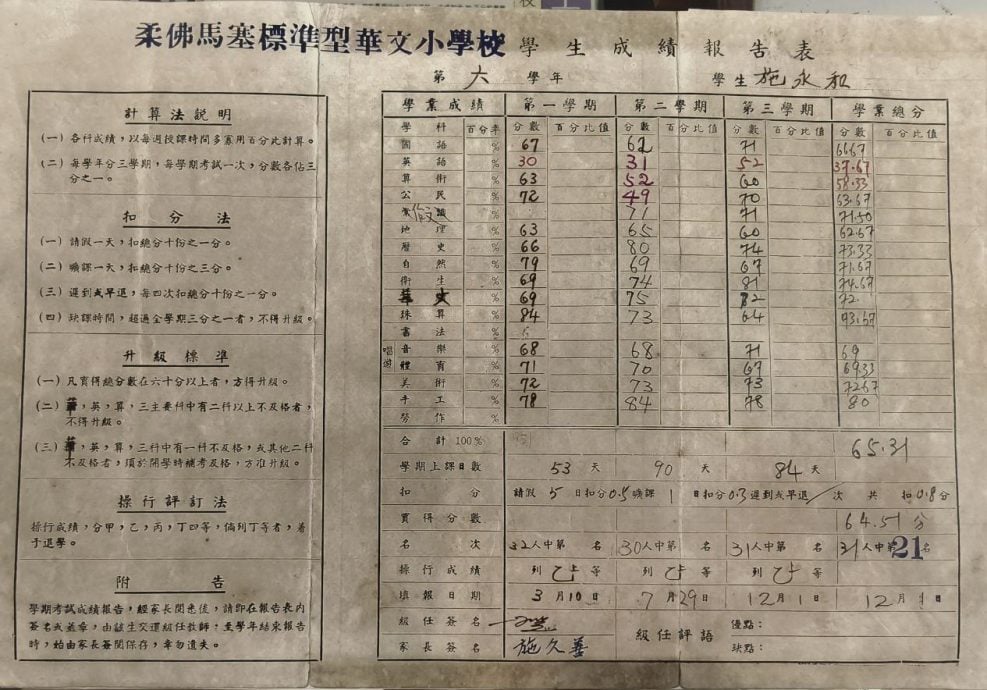 柔佛馬塞標準型華文小學校 學生成績報告表
第六學年 學生 施永和
計算法説明
(一) 各科成績，以每週授課時間多寡用百分比計算。
(二) 每學年分三學期，每學期考試一次，分數各佔三
分之一。
扣分法
(一) 請假一天，扣總分十份之一分。
(二) 曠課一天，扣總分十份之三分。
(三) 遲到或早退，每四次扣總分十份之一分。
(四) 缺課時間，超過全學期三分之一者，不得升級。
升級標準
(一) 凡實得總分數在六十分以上者，方得升級。
(二) 華，英，算，三主要科中有二科以上不及格者，
不得升級。
(三) 華，英，算，三科中有一科不及格，或其他二科
不及格者，須於開學時補考及格，方准升級。
操行評訂法
操行成績，分甲，乙，丙，丁四等，倘列丁等者，着
于退學。
附告
學期考試成績報告，經家長閱悉後，請即在報告表內
簽名或蓋章，由該生交還級任教師，至學年結束報告
時，始由家長簽閱保存，幸勿遺失。
學業成績 第一學期 第二學期 第三學期 學業總分
學科 百分率 分數 百分比值 分數 百分比值 分數 百分比值 分數 百分比值
國語 % 67 62 71 66.67
英語 % 30 31 52 37.67
算術 % 63 52 60 58.33
公民 % 72 49 70 63.67
常識 % 71 71 71.50
地理 % 63 65 60 62.67
歷史 % 66 80 74 73.33
自然 % 79 69 67 71.67
衛生 % 69 74 81 74.67
華文 % 69 75 72
珠算 % 84 73 64
書法 %
唱遊 音樂 % 68 68 71 69
體育 % 71 70 67 69.33
美術 % 72 73 73 72.67
手工 % 78 84 78 80
勞作 %
合計 100% 65.31
學期上課日數 53天 90天 84天
扣分 請假5日扣分0.5曠課1日扣分0.3遲到或早退/次共扣0.8分
實得分數 64.51分
名次 32人中第 名 30人中第 名 31人中第 名 31人中第21名
操行成績 列乙上等 列乙上等 列乙上等
填報日期 3月10日 7月29日 12月1日 12月1日
級任簽名 級任評語 優點：
家長簽名 施久善 缺點：